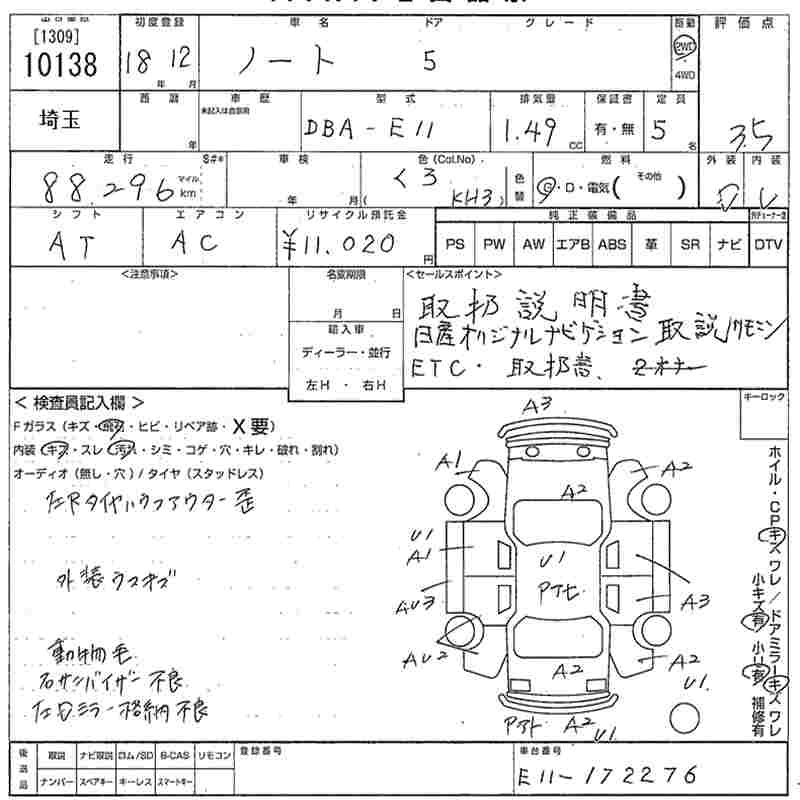 [1309]
10138
初度登録
18 12
年 月
車名
ノート
ドア
5
グレード
駆動
2WD
4WD
評価点
3.5
埼玉
西暦
年
車歴
未記入は自家用
型式
DBA-E11
排気量
1.49
CC
保証書
有・無
定員
5
名
走行
88,296
マイル
km
S#*
車検
年 月
色(Col.No)
くろ
( KH3 )
色替
燃料
G・D・電気( その他 )
外装
D
内装
シフト
AT
エアコン
AC
リサイクル預託金
¥11.020
円
純正装備品
PS PW AW エアB ABS 革 SR ナビ DTV
<注意事項>
名変期限
月 日
輸入車
ディーラー・並行
左H ・ 右H
<セールスポイント>
取扱説明書
日産オリジナルナビゲーション取説/リモコン
ETC・取扱書、
< 検査員記入欄 >
Fガラス (キズ・飛石・ヒビ・リペア跡・X要)
内装 (キズ・スレ・汚れ・シミ・コゲ・穴・キレ・破れ・割れ)
オーディオ (無し・穴) / タイヤ (スタッドレス)
左Rタイヤハウスアウター歪
外装ウスキズ
動物毛
右サンバイザー不良
左Dミラー格納不良
キーロック
ホイル・CPキズワレ/ドアミラーキズワレ
小キズ有 小凹有 補修有
A3
A1
A2
A2
U1
A1
U1
アトセ
AU3
A3
AU2
A2
A2
U1
アト
A2
U1
後送品
取説 ナビ取説 ロム/SD B-CAS リモコン
ナンバー スペアキー キーレス スマートキー
登録番号
車台番号
E11-172276